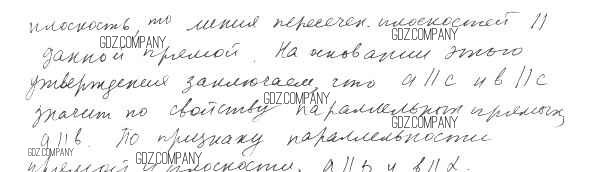 плоскость, то линия пересечен. плоскостей ||
GDZ.COMPANY
GDZ.COMPANY
данной прямой. На основании этого
утверждения заключаем, что a || c и b || c
GDZ.COMPANY
значит по свойству параллельных прямых,
GDZ.COMPANY
a || b. По признаку параллельности
GDZ.COMPANY
GDZ.COMPANY
прямой и плоскости, a || b и b || α.